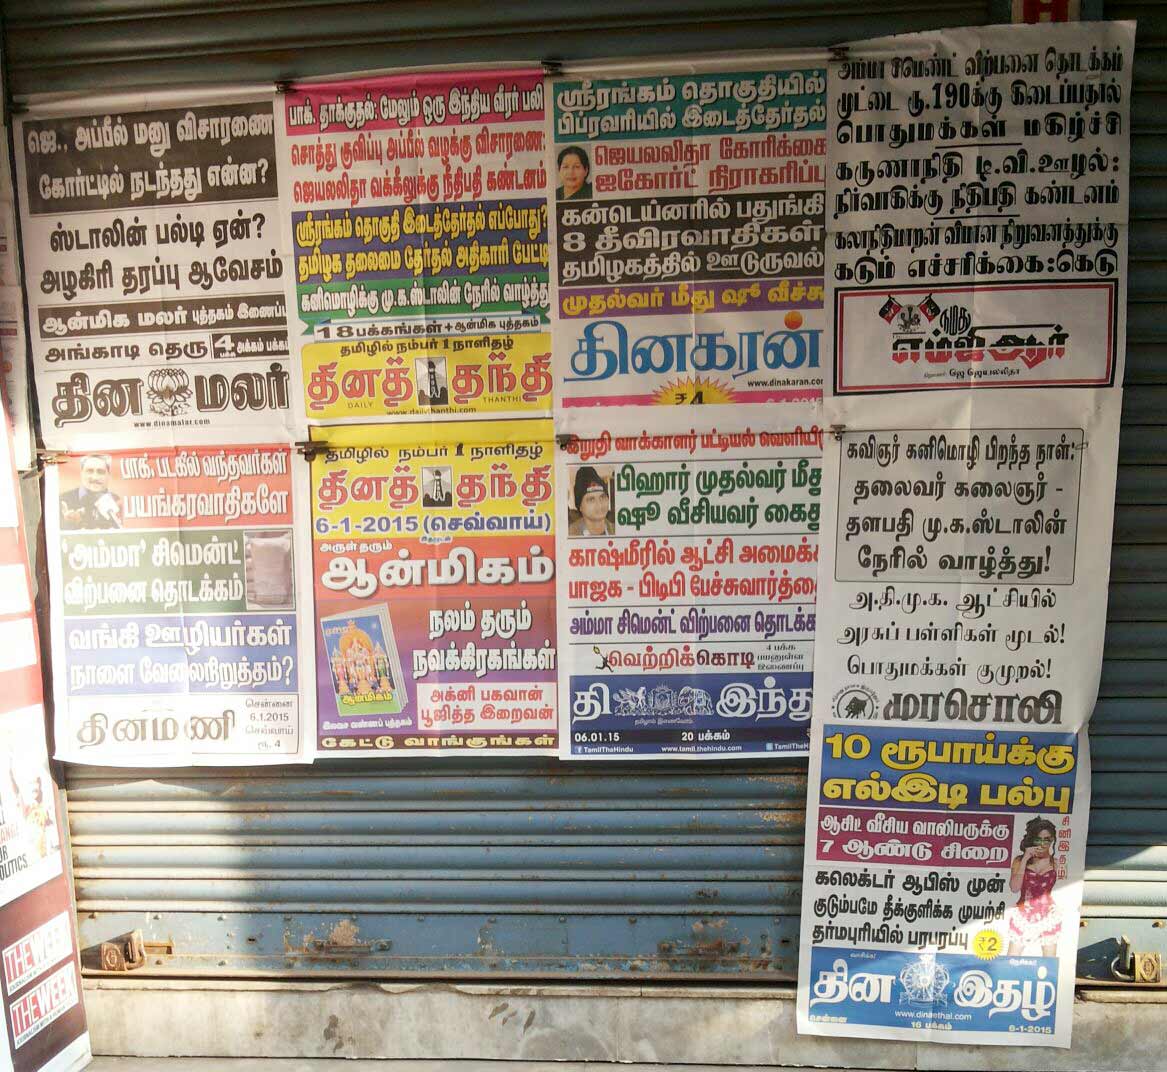 ஜெ., அப்பீல் மனு விசாரணை
கோர்ட்டில் நடந்தது என்ன?
ஸ்டாலின் பல்டி ஏன்?
அழகிரி தரப்பு ஆவேசம்
ஆன்மிக மலர் புத்தகம் இணைப்பு
அங்காடி தெரு 4 அக்கம் பக்கம்
தின மலர்
www.dinamalar.com
பாக். தாக்குதல்: மேலும் ஒரு இந்திய வீரர் பலி
சொத்து குவிப்பு அப்பீல் வழக்கு விசாரணை:
ஜெயலலிதா வக்கீலுக்கு நீதிபதி கண்டனம்
ஸ்ரீரங்கம் தொகுதி இடைத்தேர்தல் எப்போது?
தமிழக தலைமை தேர்தல் அதிகாரி பேட்டி
கனிமொழிக்கு மு.க.ஸ்டாலின் நேரில் வாழ்த்து
18 பக்கங்கள் + ஆன்மிக புத்தகம்
தமிழில் நம்பர் 1 நாளிதழ்
தினத் தந்தி
DAILY THANTHI
www.dailythanthi.com
ஸ்ரீரங்கம் தொகுதியில்
பிப்ரவரியில் இடைத்தேர்தல்
ஜெயலலிதா கோரிக்கை
ஐகோர்ட் நிராகரிப்பு
கன்டெய்னரில் பதுங்கி
8 தீவிரவாதிகள்
தமிழகத்தில் ஊடுருவல்
முதல்வர் மீது ஷூ வீச்சு
தினகரன்
www.dinakaran.com
₹4
அம்மா சிமெண்ட் விற்பனை தொடக்கம்
முட்டை ரூ.190க்கு கிடைப்பதால்
பொதுமக்கள் மகிழ்ச்சி
கருணாநிதி டி.வி.ஊழல்:
நிர்வாகிக்கு நீதிபதி கண்டனம்
கலாநிதிமாறன் விமான நிறுவனத்துக்கு
கடும் எச்சரிக்கை:கெடு
நமது
எம்ஜிஆர்
நிறுவனர்: ஜெ ஜெயலலிதா
பாக். படகில் வந்தவர்கள்
பயங்கரவாதிகளே
'அம்மா' சிமென்ட்
விற்பனை தொடக்கம்
வங்கி ஊழியர்கள்
நாளை வேலைநிறுத்தம்?
தினமணி
சென்னை
6.1.2015
செவ்வாய்
ரூ. 4
தமிழில் நம்பர் 1 நாளிதழ்
தினத் தந்தி
6-1-2015 (செவ்வாய்)
இதழுடன்
அருள் தரும்
ஆன்மிகம்
நலம் தரும்
நவக்கிரகங்கள்
ஆன்மிகம்
அக்னி பகவான்
பூஜித்த இறைவன்
இலவச வண்ணப் புத்தகம்
கேட்டு வாங்குங்கள்
இறுதி வாக்காளர் பட்டியல் வெளியீடு
பிஹார் முதல்வர் மீது
ஷூ வீசியவர் கைது
காஷ்மீரில் ஆட்சி அமைக்க
பாஜக - பிடிபி பேச்சுவார்த்தை
அம்மா சிமென்ட் விற்பனை தொடக்கம்
வெற்றிக்கொடி
4 பக்க
பயனுள்ள
இணைப்பு
தி இந்து
06.01.15 20 பக்கம்
TamilTheHindu www.tamil.thehindu.com TamilTheHindu
கவிஞர் கனிமொழி பிறந்த நாள்:
தலைவர் கலைஞர் -
தளபதி மு.க.ஸ்டாலின்
நேரில் வாழ்த்து!
அ.தி.மு.க. ஆட்சியில்
அரசுப் பள்ளிகள் மூடல்!
பொதுமக்கள் குமுறல்!
முரசொலி
10 ரூபாய்க்கு
எல்இடி பல்பு
ஆசிட் வீசிய வாலிபருக்கு
7 ஆண்டு சிறை
கலெக்டர் ஆபிஸ் முன்
குடும்பமே தீக்குளிக்க முயற்சி
தர்மபுரியில் பரபரப்பு
₹2
தின இதழ்
www.dinaethal.com
சென்னை 16 பக்கம் 6-1-2015
THE WEEK
THE WEEK